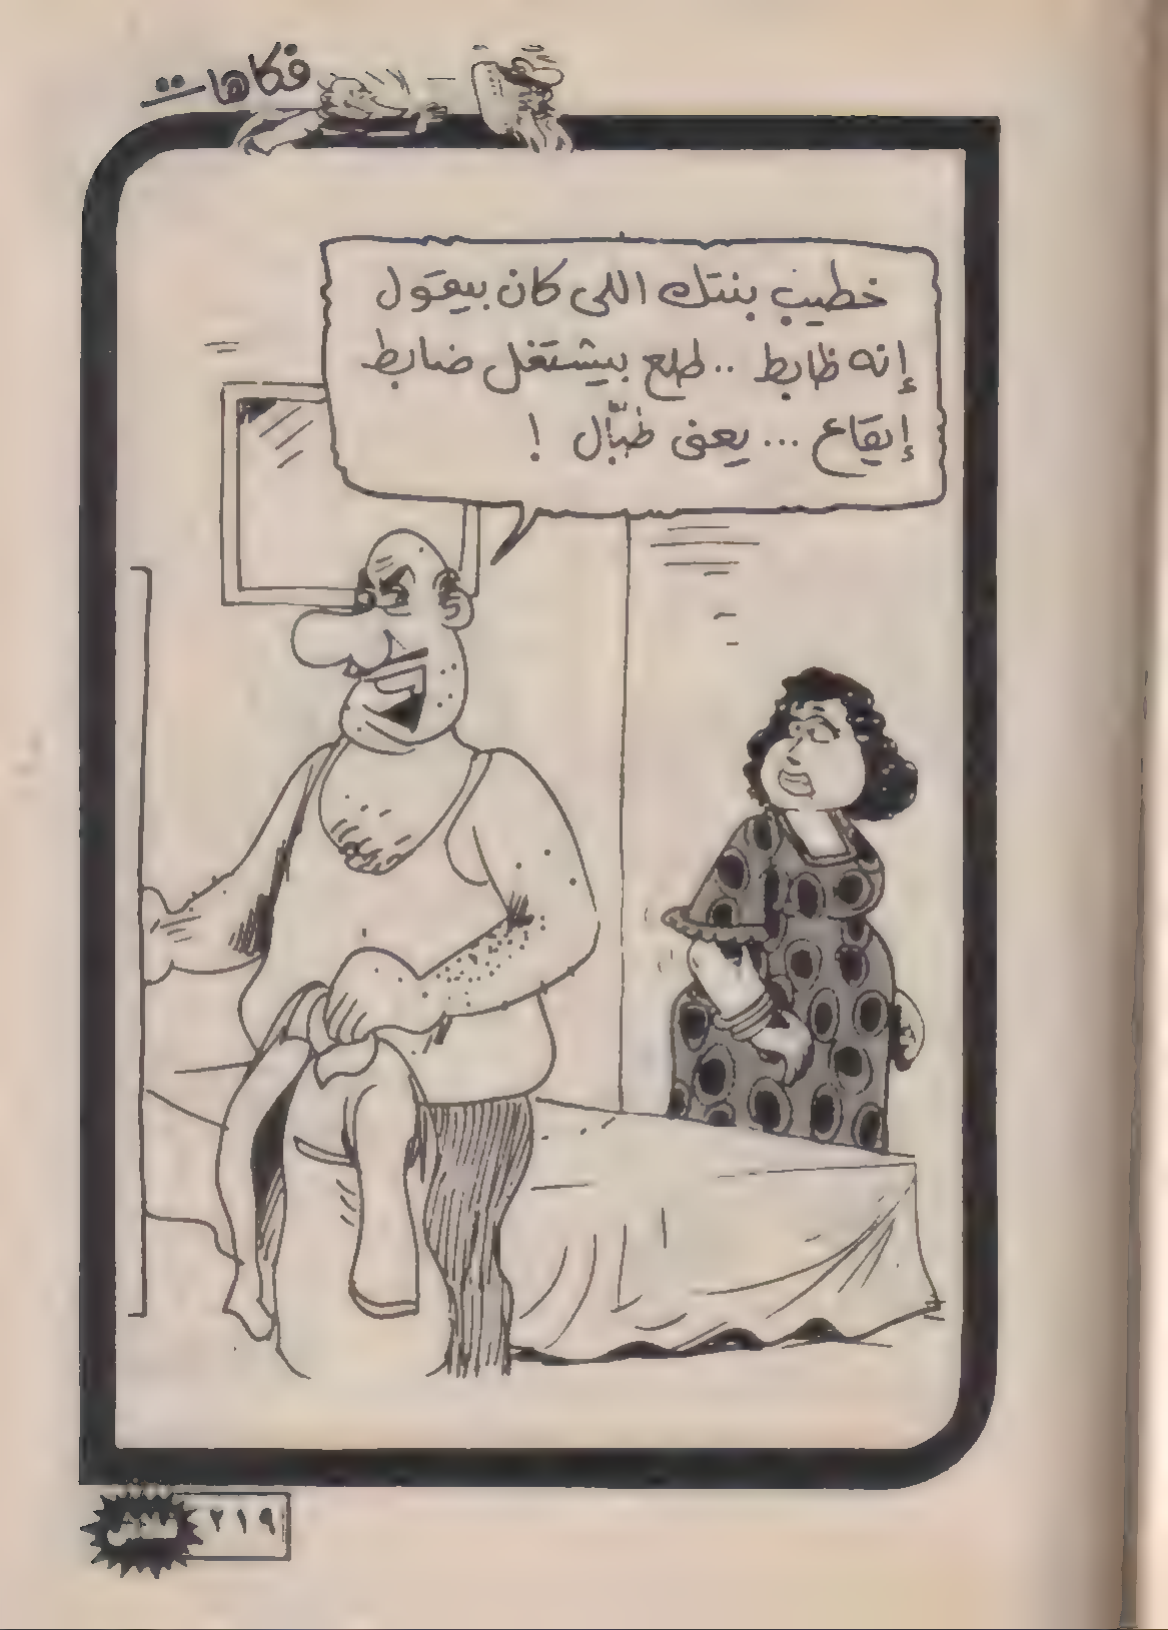 فكاهات
خطيب بنتك اللى كان بيقول
إنه ظابط .. طلع بيشتغل ضابط
إيقاع ... يعنى طبّال !
فلاش ٢١٩